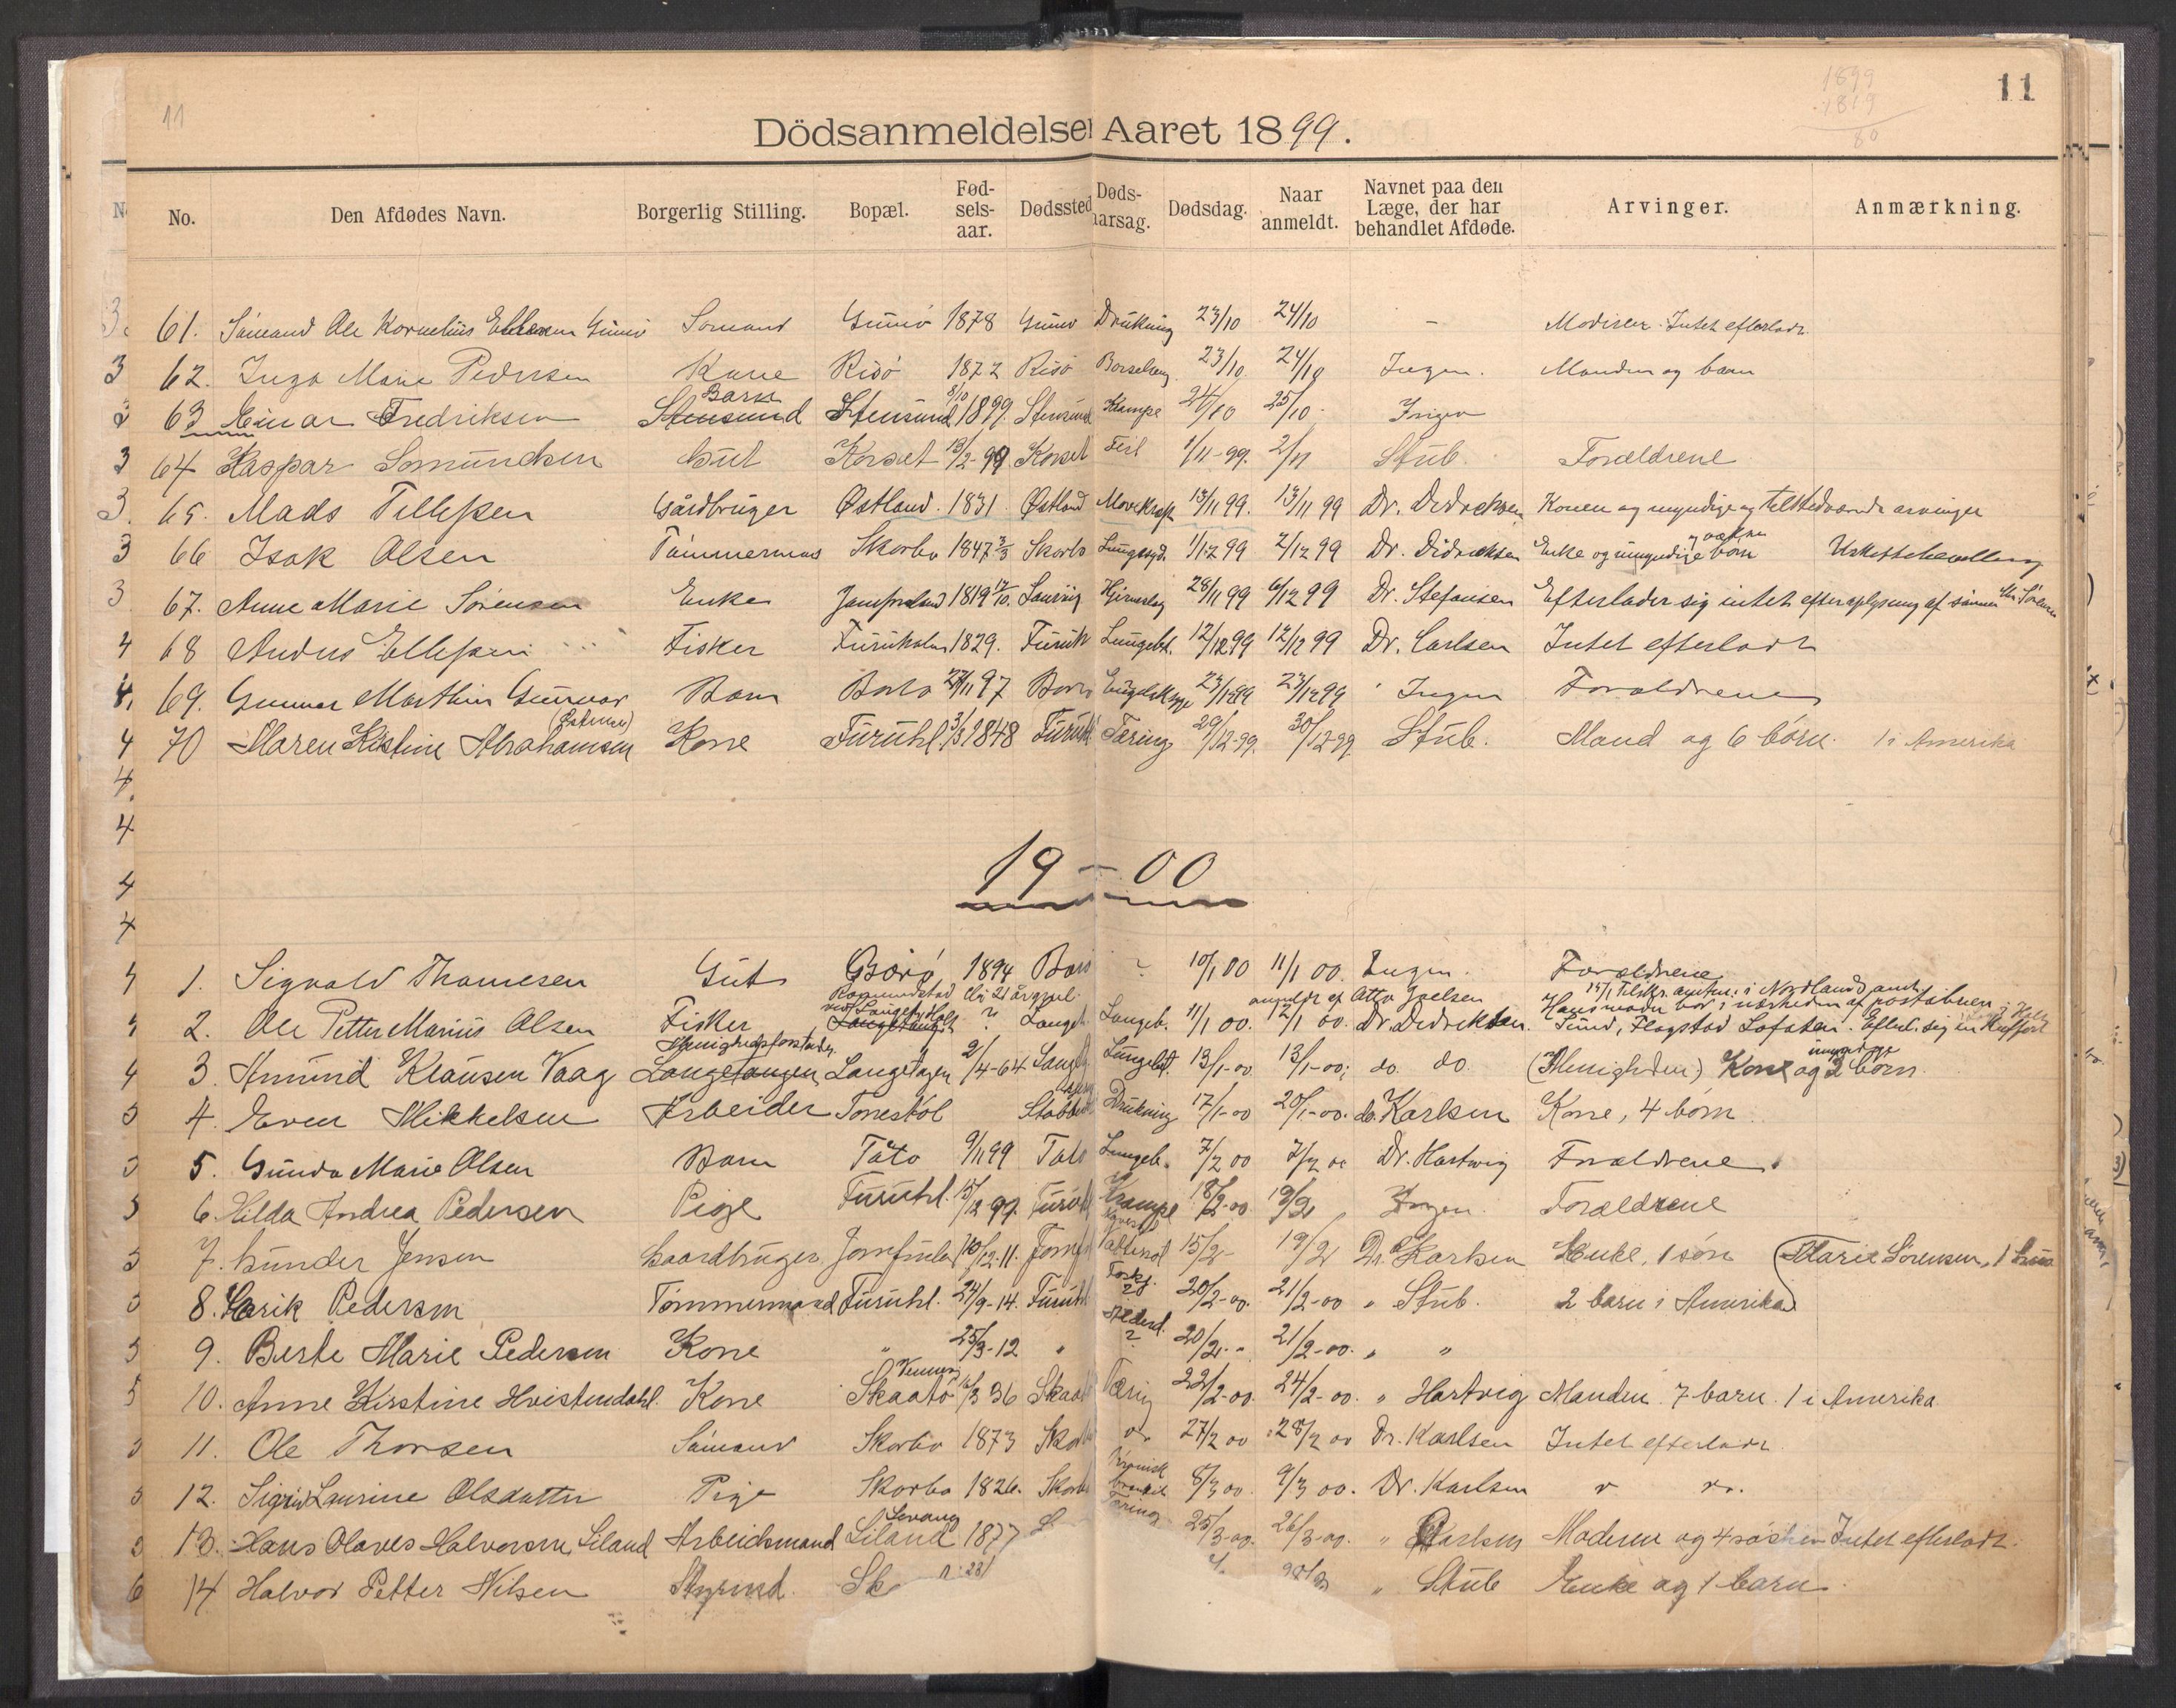 11
1899
1819
80
11
Dödsanmeldelser Aaret 1899.
No. Den Afdødes Navn. Borgerlig Stilling. Bopæl. Fødselsaar. Dødssted Dødsaarsag. Dødsdag. Naar anmeldt. Navnet paa den Læge, der har behandlet Afdøde. Arvinger. Anmærkning.
61. Sømand Ole Kornelius Ellefsen Gumø Sømand Gumø 1878 Gumø Drukning 23/10 24/10 – Moderen. Intet efterladt.
62. Inga Marie Pedersen Kone Risö 1872 Risö Barselseng 23/10 24/10 Ingen. Manden og barn
63 Einar Fredriksen Stensund Barn Stensund 8/10 1899. Stensund Krampe 24/10 25/10. Ingen
64 Kaspar Somundsen Gut Korset 13/2-99 Korset Feil 1/11-99. 2/11 Stub. Forældrene
65. Mads Tellefsen Gårdbruger Østland. 1831. Østland 13/11 99. 13/11 99 Dr. Didreksen Konen og myndige og tilstedværende arvinger
66 Isak Olsen Tømmermand Skorbo 1847 3/3 Skorbo Lungesyd. 1/12 99 2/12 99 Dr. Didreksen Enke og umyndige og voksne børn Uskiftebevilling
67. Anne Marie Sörensen Enke Jomfruland 1819 17/10. Laurvig Hjerneslag 28/11 99 6/12 99 Dr. Stefansen Efterlader sig intet efter oplysning af sønnen
68 Anders Ellefsen Fisker Furuholm 1829. Furuh Lungebet. 12/12 99 12/12 99 Dr. Carlsen Intet efterladt
69. Gunnar Marthin Gunvor Barn 27/11 97 23/12 99 23/12 99 Ingen Forældrene
70 Maren Kistine Abrahamsen Kone Furuhl. 1848 Furuh Tæring 29/12-99. 30/12-99. Stub. Mand og 6 børn. 1 i Amerika
19-00
1. Sigvald Thomesen Gut Borø 1894 Borø ? 10/1 00 11/1 00. Ingen. Forældrene
2. Ole Petter Marius Olsen Fisker ved Langetangen ? Langet. Lungeb. 11/1 00. anmeldt af Otto Joelsen 12/1 00. Dr. Didreksen. Hans moder bor i nærheden af postaabneri Sund, Flagstad Lofoten. Efterl. sig en Kuffert
15/1 Tilskr. amtm. i Nordlands amt.
3. Amund Klausen Vaag Langetangen Menighedsforstander Langetagen 2/4-64 Langet Lungebet 13/1-00 13/1-00; do. do. (Menigheden) Kone og 2 umyndige børn.
4. Even Mikkelsen Arbeider Toneskol Drukning 17/1-00 20/1-00. do. Karlsen Kone, 4 børn
5. Gunda Marie Olsen Barn Tåtø 9/1 99 Tatø Lungeb. 7/2 00 7/2 00 Dr. Hartvig Forældrene.
6. Hilda Andrea Pedersen Pige Furuhl. 15/12 97. Furuhl Krampe 18/2-00 19/2 Ingen. Forældrene
7. Gunder Jensen Gaardbruger Jomfruland 10/12-11. Jomfr 15/2- 19/2 Dr. Karlsen Enke, 1 søn (Marie Sørensen, 1
8. Lørik Pedersen Tømmermand Furuhl. 24/9-14. Furuhl ? 20/2-00. 21/2-00 " Stub. 2 barn i Amerika
9. Berte Marie Pedersen Kone " 25/3-12 " Alderd. ? 20/2-" 21/2-00. " "
10. Anne Kirstine Hvistendahl. Kone Skaatø 16/3 36 Skaatø Tæring 22/2-00. 24/2-00. " Hartvig Manden. 7 barn. 1 i Amerika
11. Ole Thorsen Sømand Skorbo 1873 Skorb do. 27/2 00 28/2 00 Dr. Karlsen Intet efterladt
12. Sigrid Laurine Olsdatter Pige Skorbo 1826. Skorbo Kronisk bronkit 8/3 00. 9/3 00. Dr. Karlsen
13. Hans Olaves Halvorsen, Liland Arbeidsmand Levang Liland 1877 L Tæring 25/3-00. 26/3-00. " Karlsen Moderen og 4 søsken Intet efterladt.
14 Halvor Petter Nilsen Styrmd. Sk " Stub Enke og 1 barn.